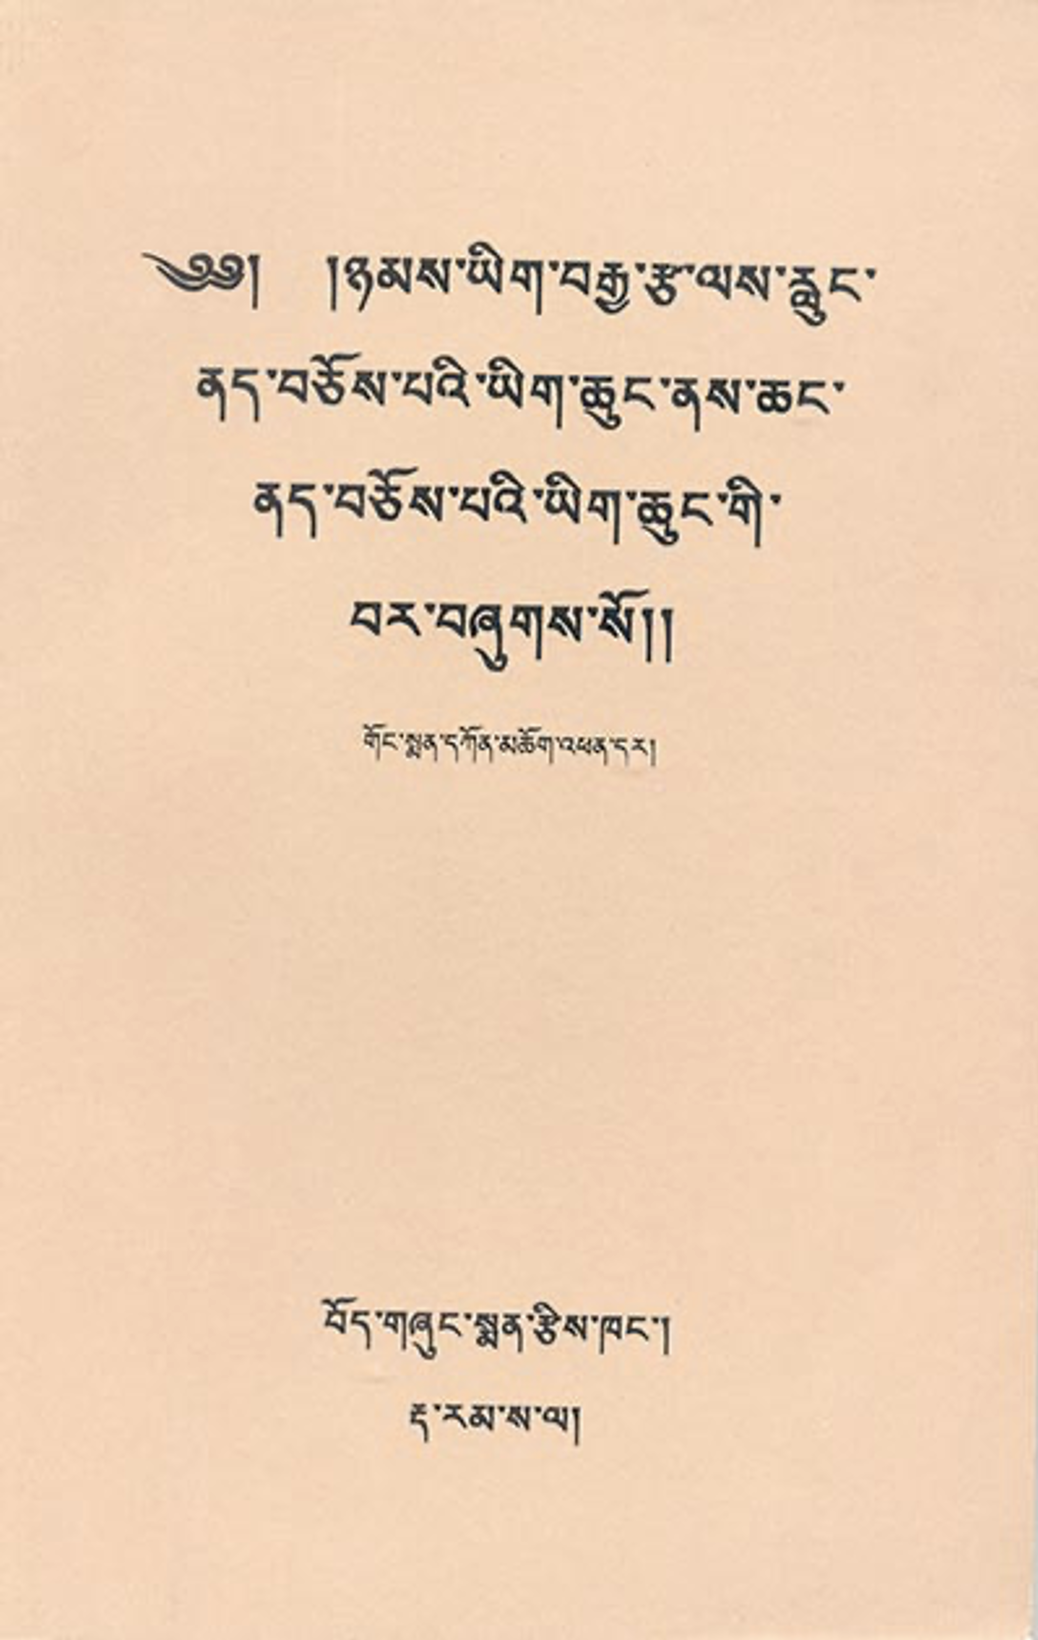 ༄༅།  །ཉམས་ཡིག་བརྒྱ་རྩ་ལས་རླུང་
ནད་བཅོས་པའི་ཡིག་ཆུང་ནས་ཆང་
ནད་བཅོས་པའི་ཡིག་ཆུང་གི་
བར་བཞུགས་སོ།།
གོང་སྨན་དཀོན་མཆོག་འཕན་དར།
བོད་གཞུང་སྨན་རྩིས་ཁང་།
རྡ་རམ་ས་ལ།